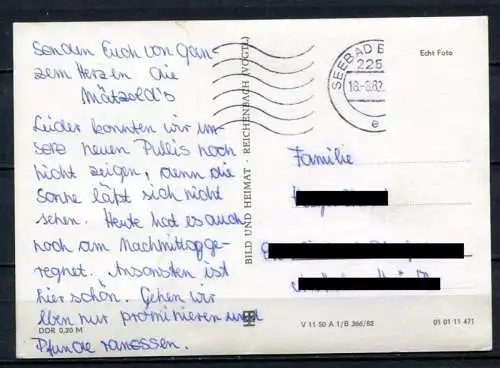 senden Euch von gan-
zem Herzen die
Mätzold's
Leider konnten wir un-
sere neuen Pullis noch
nicht zeigen, denn die
Sonne läßt sich nicht
sehen. Heute hat es auch
noch am Nachmittag ge-
regnet. Ansonsten ist
hier schön. Gehen wir
eben nur prominieren und
Pfunde ranessen.
DDR 0,20 M
BILD UND HEIMAT · REICHENBACH (VOGTL)
SEEBAD B
225
18.-8.82
e
Echt Foto
Familie
V 11-50 A 1/B 366/82
01 01 11 471